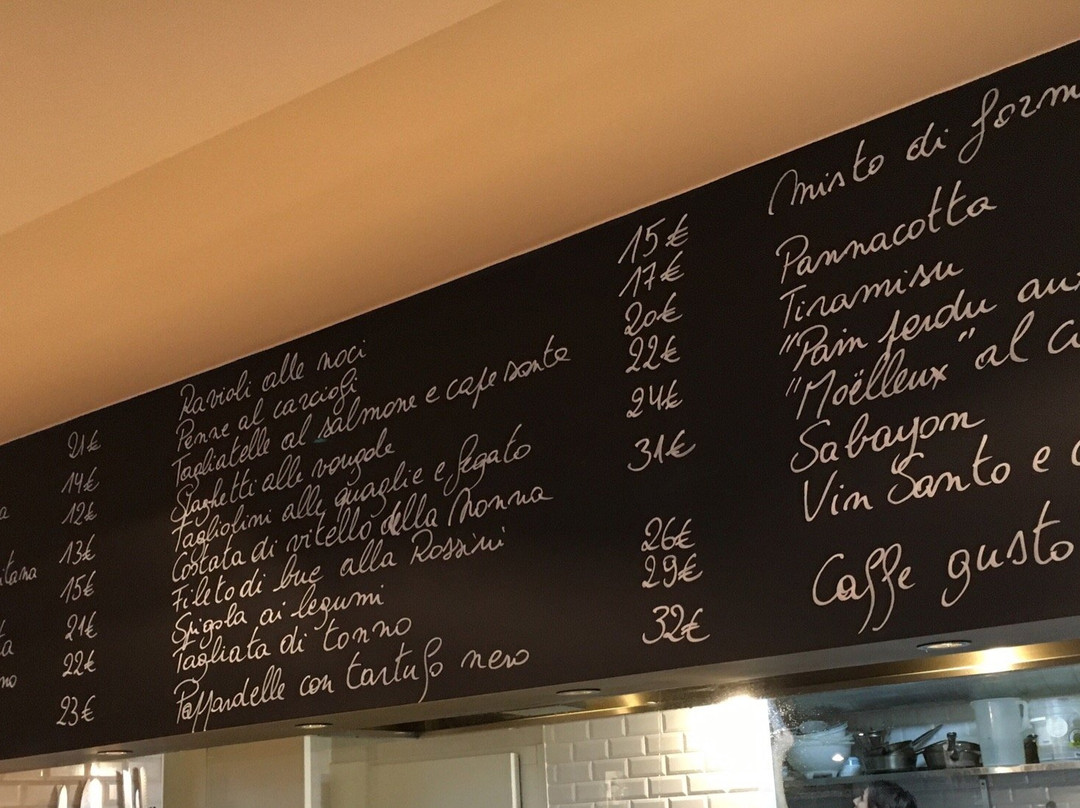 21€
14€
12€
13€
15€
21€
22€
23€
Ravioli alle noci
Penne al carciofi
Tagliatelle al salmone e cape sante
Spaghetti alle vongole
Tagliolini alle quaglie e fegato
Costata di vitello della Nonna
Fileto di bue alla Rossini
Spigola ai legumi
Tagliata di tonno
Pappardelle con tartufo nero
15€
17€
20€
22€
24€
31€
26€
29€
32€
Misto di form
Pannacotta
Tiramisu
"Pain perdu aux
"Moëlleux" al c
Sabayon
Vin Santo e c
Caffe gusto